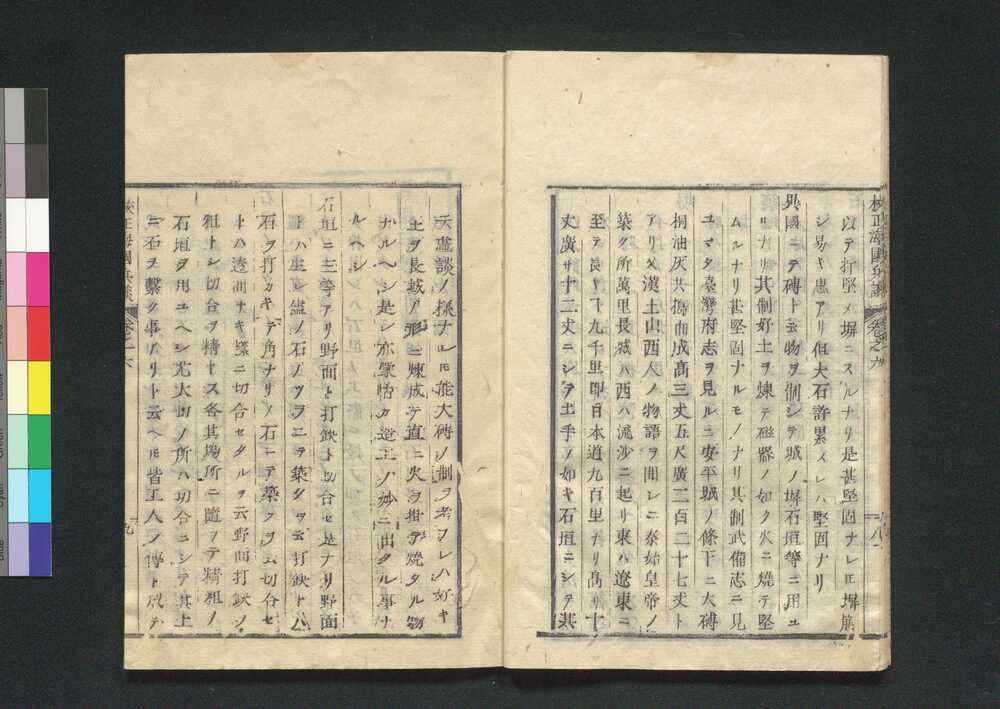 校正海國兵談 卷之六 八
以テ打堅メ塀ニスルナリ是甚堅固ナレ𪜈塀崩
シ易キ患アリ但大石許累イレハ堅固ナリ
異國ニテ磚ト云物ヲ制シテ城ノ塀石垣等ニ用ユ
ルナリ其制好土ヲ煉テ磁器ノ如ク火ニ燒テ堅
ムルナリ甚堅固ナルモノナリ其制武備志ニ見
ユマタ臺灣府志ヲ見ルニ安平城ノ條下ニ大磚
桐油灰共搗而成高三丈五尺廣二百二十七丈ト
アリ又漢土山西人ノ物語ヲ聞シニ秦始皇帝ノ
築ク所萬里長城ハ西ハ流沙ニ起リ東ハ遼東ニ
至テ長サ九千里即日本道九百里ナリ高サ十
丈廣サ十二丈ニシテ土手ノ如キ石垣ニシテ其
大虛談ノ樣ナレ𪜈能大磚ノ制ヲ考フレハ好キ
土ヲ長城ノ形ニ煉成テ直ニ火ヲ掛テ燒タル物
ナルヘシ是レ亦蒙恬カ造工ノ妙ニ出タル事ナ
ルヘシ
石垣ニ三等アリ野面ト打欽ト切合セ是ナリ野面
トハ生レ儘ノ石ノツラニテ築クヲ云打欽トハ
石ヲ打カキテ角ナリノ石ニテ築クヲ云切合セ
トハ透間ナキ樣ニ切合セタルヲ云野面打欽ノ
粗トシ切合ヲ精トス各其塲所ニ隨フテ精粗ノ
石垣ヲ用ユヘシ尤大切ノ所ハ切合ニシテ其上
ニ石ヲ繫ク事アリト云ヘ𪜈皆工人ノ傳ト成テ
校正海國兵談 卷之六 九